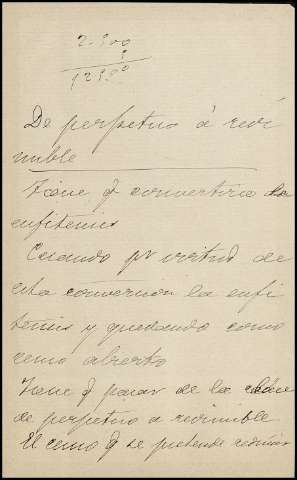 De perpetuo á redi
mible
Tiene q convertirse la
enfiteusis
Cuando pr virtud de
esta conversion la enfi
teusis y quedando como
censo abierto
Tiene q pasar de la clase
de perpetuo a redimible.
El censo q se pretende redimir